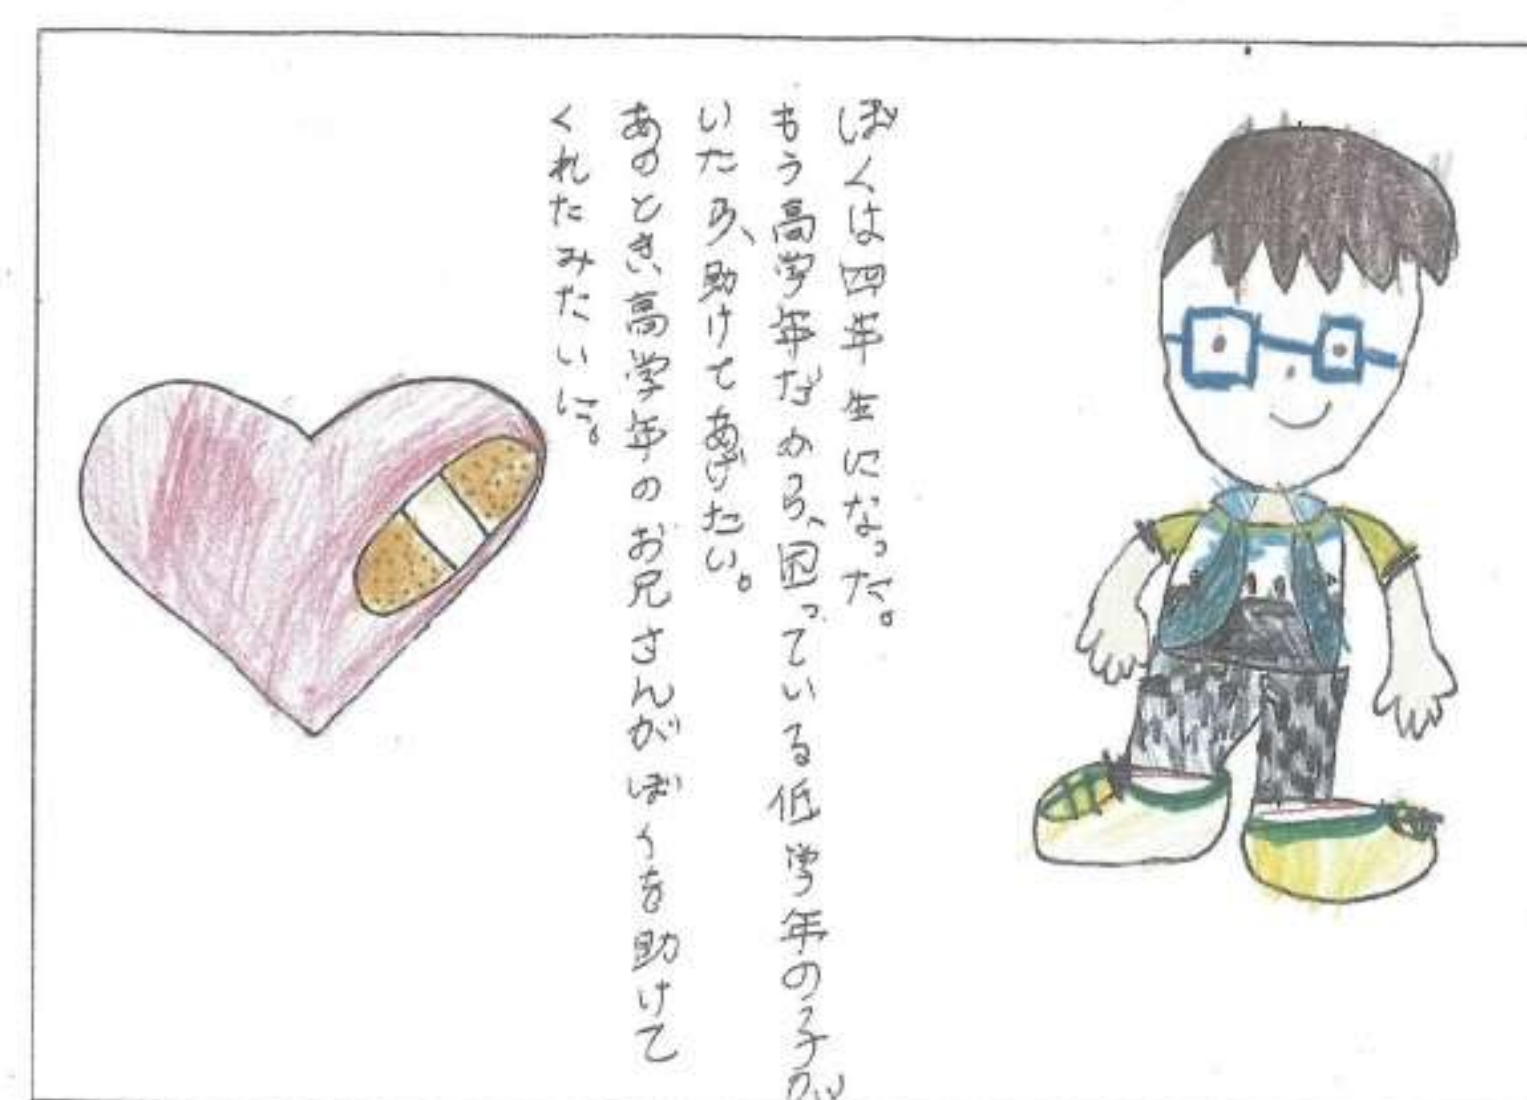 ぼくは四年生になった。
もう高学年だから、困っている低学年の子が
いたら、助けてあげたい。
あのとき、高学年のお兄さんがぼくを助けて
くれたみたいに。